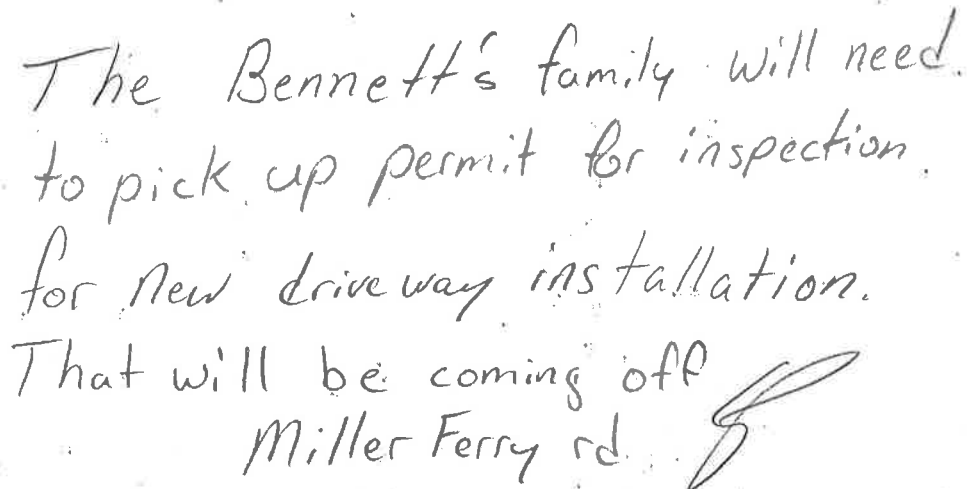 The Bennett's family will need
to pick up permit for inspection
for new driveway installation.
That will be coming off
Miller Ferry rd